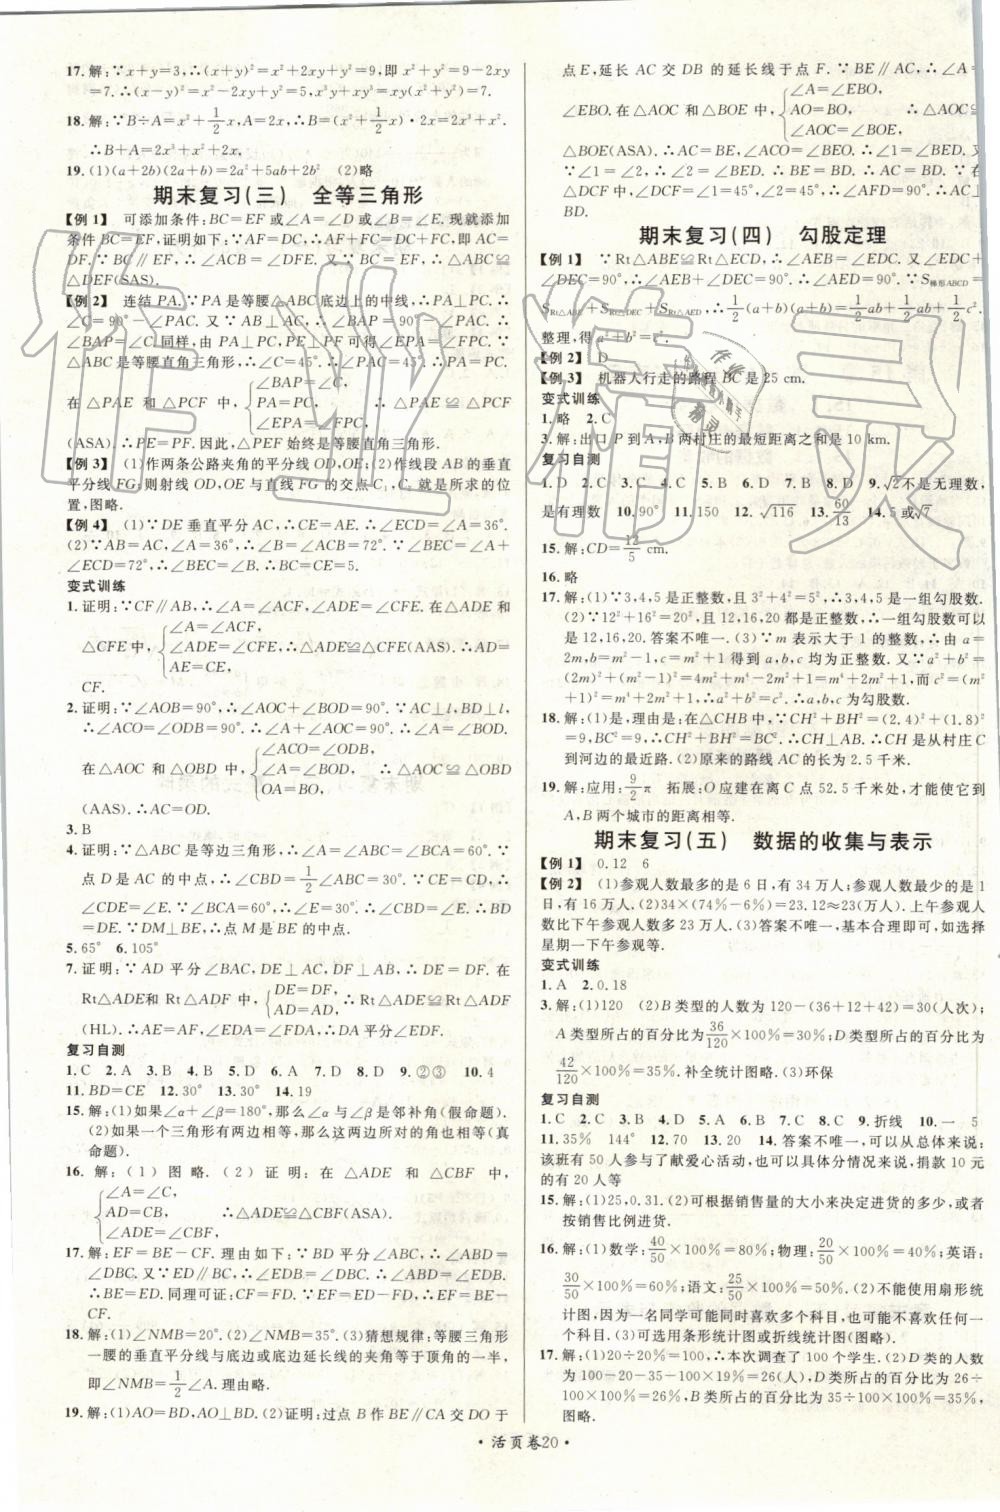 17. 解:∵x+y=3,∴(x+y)²=x²+2xy+y²=9,即 x²+y²=9-2xy
=7.∴(x-y)²=x²-2xy+y²=5,x³y+xy³=xy(x²+y²)=7.
18. 解:∵B÷A=x²+1/2x,A=2x,∴B=(x²+1/2x)·2x=2x³+x².
∴B+A=2x³+x²+2x.
19. (1)(a+2b)(2a+b)=2a²+5ab+2b² (2)略
期末复习(三) 全等三角形
【例 1】 可添加条件:BC=EF或∠A=∠D或∠B=∠E.现就添加
条件 BC=EF,证明如下:∵AF=DC,∴AF+FC=DC+FC.∴AC=
DF.∵BC∥EF,∴∠ACB=∠DFE.又∵BC=EF,∴△ABC≌
△DEF(SAS).
【例 2】 连结 PA.∵PA是等腰△ABC底边上的中线,∴PA⊥PC.∴
∠C=90°-∠PAC.又∵AP⊥BC,∴∠BAP=90°-∠PAC.∴
∠BAP=∠C.同样,由 PA⊥PC,PE⊥PF 可得∠EPA=∠FPC.∵
△ABC是等腰直角三角形,∴∠C=45°.∴∠PAC=45°.∴PA=PC.
在△PAE 和△PCF 中,{∠BAP=∠C, PA=PC, ∠EPA=∠FPC, ∴△PAE≌△PCF
(ASA).∴PE=PF.因此,△PEF 始终是等腰直角三角形.
【例 3】 (1)作两条公路夹角的平分线 OD,OE;(2)作线段 AB 的垂直
平分线 FG;则射线 OD,OE 与直线 FG 的交点 C₁,C₂ 就是所求的位置,
图略.
【例 4】 (1)∵DE 垂直平分 AC,∴CE=AE.∴∠ECD=∠A=36°.
(2)∵AB=AC,∠A=36°,∴∠ACB=∠B=72°.∵∠BEC=∠A+
∠ECD=72°,∴∠BEC=∠B.∴BC=CE=5.
变式训练
1. 证明:∵CF∥AB,∴∠A=∠ACF,∠ADE=∠CFE.在△ADE 和
△CFE 中,{∠A=∠ACF, ∠ADE=∠CFE, AE=CE, ∴△ADE≌△CFE(AAS).∴AD=
CF.
2. 证明:∵∠AOB=90°,∴∠AOC+∠BOD=90°.∵AC⊥l,BD⊥l,
∴∠ACO=∠BDO=90°.∴∠A+∠AOC=90°.∴∠A=∠BOD.
在△AOC 和△OBD 中,{∠ACO=∠ODB, ∠A=∠BOD, OA=BO, ∴△AOC≌△OBD
(AAS).∴AC=OD.
3. B
4. 证明:∵△ABC 是等边三角形,∴∠ABC=∠ACB=60°.∵
点 D 是 AC 的中点,∴∠CBD=1/2∠ABC=30°.∵CD=CE,
∴∠CDE=∠E.∵∠BCA=60°,∴∠E=30°.∴∠CBD=∠E.∴BD=
DE.∵DM⊥BE,∴点 M 是 BE 的中点.
5. 65° 6. 105°
7. 证明:∵AD 平分∠BAC,DE⊥AC,DF⊥AB,∴DE=DF.在
Rt△ADE和 Rt△ADF 中,{DE=DF, AD=AD, ∴Rt△ADE≌Rt△ADF
(HL).∴AE=AF,∠EDA=∠FDA,∴DA平分∠EDF.
复习自测
1. C 2. A 3. B 4. B 5. D 6. A 7. D 8. D 9. ②③ 10. 4
11. BD=CE 12. 30° 13. 30° 14. 19
15. 解:(1)如果∠α+∠β=180°,那么∠α与∠β是邻补角(假命题).
(2)如果一个三角形有两边相等,那么这两边所对的角也相等(真
命题).
16. 解:(1)图略.(2)证明:在△ADE 和△CBF 中,
{∠A=∠C, AD=CB, ∠ADE=∠CBF, ∴△ADE≌△CBF(ASA).
17. 解:EF=BE-CF.理由如下:∵BD 平分∠ABC,∴∠ABD=
∠DBC.又∵ED∥BC,∴∠EDB=∠DBC.∴∠ABD=∠EDB.
∴BE=ED.同理可证:CF=FD.∵EF=ED-FD,∴EF=BE-
CF.
18. 解:(1)∠NMB=20°.(2)∠NMB=35°.(3)猜想规律:等腰三角形
一腰的垂直平分线与底边或底边延长线的夹角等于顶角的一半,
即∠NMB=1/2∠A.理由略.
19. 解:(1)AO=BD,AO⊥BD.(2)证明:过点 B 作 BE∥CA 交 DO 于
点 E,延长 AC 交 DB 的延长线于点 F.∵BE∥AC,∴∠A=
∠EBO.在△AOC 和△BOE 中,{∠A=∠EBO, AO=BO, ∠AOC=∠BOE, ∴△AOC≌
△BOE(ASA).∴AC=BE.又∵AC=BD,∴BE=BD.∴∠1=∠BED.又
∵∠1=∠2,∴∠2=∠BED.∴BE⊥BD.∴∠DBE=90°.∴在
△DCF 中,∠DCF=∠1=45°,∠2=45°,∴∠AFD=90°.∴AC⊥
BD.
期末复习(四) 勾股定理
【例 1】 ∵Rt△ABE≌Rt△ECD,∴∠AEB=∠EDC.又∵∠EDC+
∠DEC=90°,∴∠AEB+∠DEC=90°.∴∠AED=90°.∵S梯形ABCD=
SRt△ABE+SRt△DEC+SRt△AED,∴1/2(a+b)(a+b)=1/2ab+1/2ab+1/2c².
整理,得 a²+b²=c².
【例 2】 D
【例 3】 机器人行走的路程 BC 是 25 cm.
变式训练
1. 略 2. C
3. 解:出口 P 到 A,B 两村庄的最短距离之和是 10 km.
复习自测
1. D 2. C 3. C 4. C 5. B 6. D 7. B 8. D 9. √2不是无理数,
是有理数 10. 90° 11. 150 12. √116 13. 60/13 14. 5 或√7
15. 解:CD=12/5 cm.
16. 略
17. 解:(1)∵3,4,5 是正整数,且 3²+4²=5²,∴3,4,5 是一组勾股数.
(2)∵12²+16²=20²,且 12,16,20 都是正整数,∴一组勾股数可以
是 12,16,20.答案不唯一.(3)∵m 表示大于 1 的整数,∴由 a=
2m,b=m²-1,c=m²+1 得到 a,b,c 均为正整数.又∵a²+b²=
(2m)²+(m²-1)²=4m²+m⁴-2m²+1=m⁴+2m²+1,而c²=(m²
+1)²=m⁴+2m²+1,∴a²+b²=c².∴a,b,c 为勾股数.
18. 解:(1)是,理由是:在△CHB 中,∵CH²+BH²=(2.4)²+(1.8)²
=9,BC²=9,∴CH²+BH²=BC².∴CH⊥AB.∴CH 是从村庄 C
到河边的最近路.(2)原来的路线 AC 的长为 2.5 千米.
19. 解:应用:9/2π 拓展:O 应建在离 C 点 52.5 千米处,才能使它到
A,B 两个城市的距离相等.
期末复习(五) 数据的收集与表示
【例 1】 0.12 6
【例 2】 (1)参观人数最多的是 6 日,有 34 万人;参观人数最少的是 1
日,有 16 万人.(2)34×(74%-6%)=23.12≈23(万人).上午参观
人数比下午参观人数多 23 万人.(3)答案不唯一,基本合理即可,如选择
星期一下午参观等.
变式训练
1. A 2. 0.18
3. 解:(1)120 (2)B 类型的人数为 120-(36+12+42)=30(人次);
A 类型所占的百分比为36/120×100%=30%;D 类型所占的百分比为
42/120×100%=35%.补全统计图略.(3)环保
复习自测
1. C 2. C 3. B 4. D 5. A 6. B 7. D 8. C 9. 折线 10. 一 5
11. 35% 144° 12. 70 13. 20 14. 答案不唯一,可以从总体来说:
该班有 50 人参与了献爱心活动,也可以从部分来说:捐款 10 元
的有 20 人等
15. 解:(1)25,0.31.(2)可根据销售量的大小来决定进货的多少,或者
按销售比例进货.
16. 解:(1)数学:40/50×100%=80%;物理:20/50×100%=40%;英语:
30/50×100%=60%;语文:25/50×100%=50%.(2)不能使用扇形统
计图,因为一名同学可能同时喜欢多个科目,也可能不喜欢任何
科目.(3)可选用条形统计图或折线统计图(图略).
17. 解:(1)20÷20%=100,∴本次调查了 100 个学生.(2)D 类的人数
为 100-20-35-100×19%=26(人),D 类所占的百分比为 26÷
100×100%=26%,B 类所占的百分比为 35÷100×100%=35%,
图略.
·活页卷20·